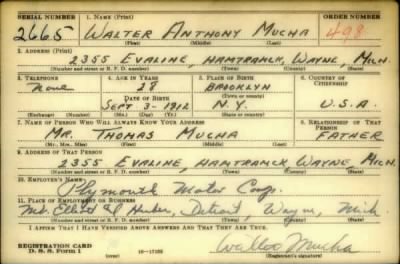 SERIAL NUMBER 1. NAME (Print) ORDER NUMBER
2665 WALTER ANTHONY MUCHA 498
(First) (Middle) (Last)
2. ADDRESS (Print)
2355 EVALINE, HAMTRAMCK, WAYNE, MICH.
(Number and street or R. F. D. number) (Town) (County) (State)
3. TELEPHONE 4. AGE IN YEARS 5. PLACE OF BIRTH 6. COUNTRY OF CITIZENSHIP
None 28 BROOKLYN
DATE OF BIRTH (Town or county)
SEPT 3-1912 N.Y. U.S.A.
(Exchange) (Number) (Mo.) (Day) (Yr.) (State or country)
7. NAME OF PERSON WHO WILL ALWAYS KNOW YOUR ADDRESS 8. RELATIONSHIP OF THAT PERSON
MR. THOMAS MUCHA FATHER
(Mr., Mrs., Miss) (First) (Middle) (Last)
9. ADDRESS OF THAT PERSON
2355 EVALINE, HAMTRAMCK WAYNE MICH.
(Number and street or R. F. D. number) (Town) (County) (State)
10. EMPLOYER'S NAME
Plymouth Motor Corp.
11. PLACE OF EMPLOYMENT OR BUSINESS
Mt. Elliott Detroit, Wayne, Mich.
(Number and street or R. F. D. number) (Town) (County) (State)
I AFFIRM THAT I HAVE VERIFIED ABOVE ANSWERS AND THAT THEY ARE TRUE.
REGISTRATION CARD
D. S. S. Form 1 Walter Mucha
(Registrant's signature)